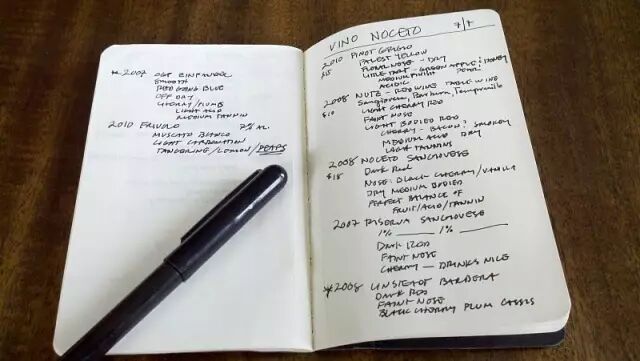 ** 2007 OGP ZINFANDEL
SMOOTH
RED GOING BLUE
OFF DRY
CHERRY/PLUMB
LIGHT ACID
MEDIUM TANNIN
2010 FRIVOLO 7% AL.
MUSCATO BIANCO
LIGHT CARBONATION
TANGERINE/LEMON/PEARS
VINO NOCETO 7/7
2010 PINOT GRIGIO
PALEST YELLOW
FLORAL NOSE - DRY
LITTLE TART - GREEN APPLE & HONEY
MEDIUM FINISH
ACIDIC
2008 NUTZ - RED WINE TABLE WINE
Sangiovese, Barbera, Tempranillo
LIGHT CHERRY RED
FAINT NOSE
LIGHT BODIED RED
CHERRY - BACON? SMOKEY
MEDIUM ACID DRY
LIGHT TANNINS
2008 NOCETO SANGIOVESE
$18 DARK RED
NOSE: BLACK CHERRY/VANILLA
DRY MEDIUM BODIED
PERFECT BALANCE OF
FRUIT/ACID/TANNIN
2007 RISERVA SANGIOVESE
1% 1%
DARK RED
FAINT NOSE
CHERRY - DRINKS NICE
** 2008 LINSTEADT BARBERA
DARK RED
FAINT NOSE
BLACK CHERRY PLUM CASSIS